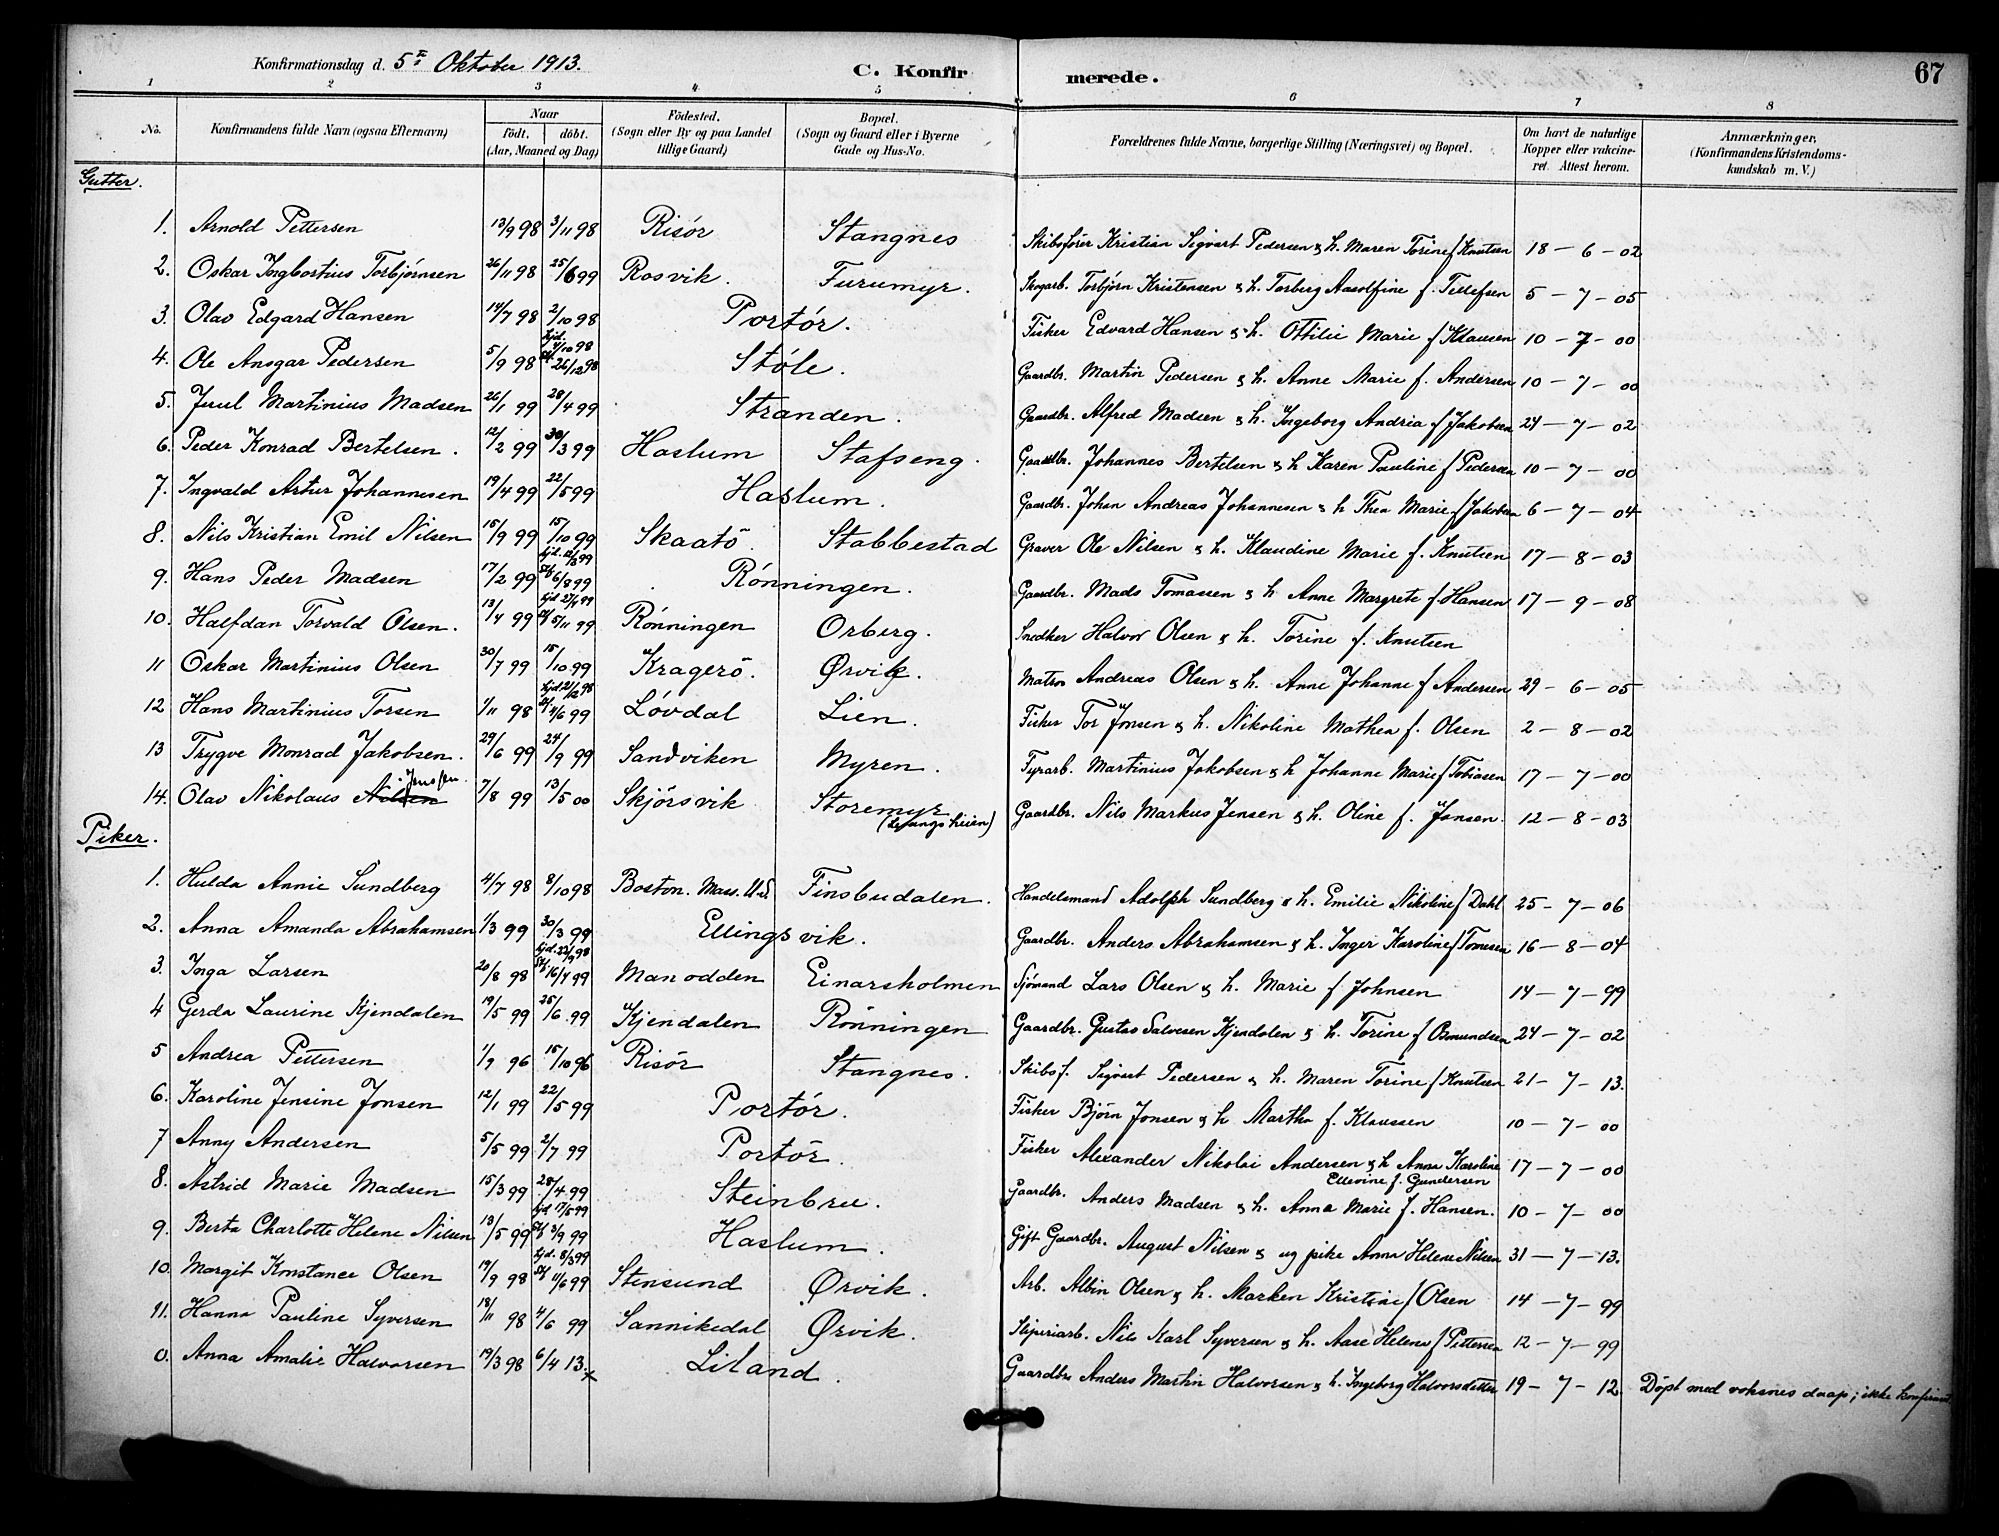 Konfirmationsdag d. 5te Oktober 1913. C. Konfirmerede. 67
1 2 3 4 5 6 7 8
No. Konfirmandens fulde Navn (ogsaa Efternavn) Naar födt. döbt. (Aar, Maaned og Dag) Födested. (Sogn eller By og paa Landet tillige Gaard) Bopæl. (Sogn og Gaard eller i Byerne Gade og Hus-No. Forældrenes fulde Navne, borgerlige Stilling (Næringsvei) og Bopæl. Om havt de naturlige Kopper eller vakcineret. Attest herom. Anmærkninger, (Konfirmandens Kristendomskundskab m. V.)
Gutter.
1. Arnold Pettersen 13/9 98 3/11 98 Risör Stangnes Skibsförer Kristian Sigvart Pedersen & h. Maren Torine f Knutsen 18 - 6 - 02
2. Oskar Ingbortius Torbjörnsen 26/11 98 25/6 99 Rosvik. Furumyr. Skogarb. Torbjörn Kristensen & h. Torberg Aasolfine f. Tellefsen 5 - 7 - 05
3. Olav Edgard Hansen 14/7 98 2/10 98 Portör. Fisker Edvard Hansen & h. Ottilie Marie f Klausen 10 - 7 - 00
4. Ole Ansgar Pedersen 5/9 98 hjd. 9/10 98 St. 26/12 98 Stöle. Gaardbr. Martin Pedersen & h. Anne Marie f. Andersen 10 - 7 - 00
5. Juul Martinius Madsen 26/1 99 28/4 99 Stranden. Gaardbr. Alfred Madsen & h. Ingeborg Andrea f Jakobsen 24 - 7 - 02
6. Peder Konrad Bertelsen. 12/2 99 30/3 99 Haslum Stafseng. Gaardbr. Johannes Bertelsen & h Karen Pauline f Pedersen 10 - 7 - 00
7. Ingvald Artur Johannesen 19/4 99 22/5 99 Haslum. Gaardbr. Johan Andreas Johannesen & h Thea Marie f Jakobsen 6 - 7 - 04
8. Nils Kristian Emil Nilsen 15/9 99 15/10 99 Skaatö Stabbestad Graver Ole Nilsen & h. Klaudine Marie f. Knutsen 17 - 8 - 03
9. Hans Peder Madsen 17/2 99 6/8 99 Rönningen. Gaardbr. Mads Tomassen & h Anne Margrete f. Hansen 17 - 9 - 08
10. Halfdan Torvald Olsen. 13/4 99 hjd 27/4 99 St. 5/11 99 Rönningen Orberg. Snedker Halvor Olsen & h. Torine f. Knutsen
11 Oskar Martinius Olsen 30/7 99 15/10 99 Kragerö. Ørvik. Matros Andreas Olsen & h. Anne Johanne f Andersen 29 - 6 - 05
12 Hans Martinius Torsen 1/11 98 hjd 21/12 98 St. 4/6 99 Lövdal Lien. Fisker Tor Jonsen & h. Nikoline Mathea f. Olsen 2 - 8 - 02
13 Trygve Monrad Jakobsen. 29/6 99 24/9 99 Sandviken Myren. Fyrarb. Martinius Jakobsen & h Johanne Marie f Tobiasen 17 - 7 - 00
14. Olav Nikolaus Nilsen Jensen. 7/8 99 13/5 00 Skjörsvik Storemyr Gaardbr. Nils Markus Jensen & h. Oline f. Jansen. 12 - 8 - 03
Piker.
1. Hulda Annie Sundberg 4/7 98 8/10 98 Boston. Mass. U.S. Finsbudalen. Handelsmand Adolph Sundberg & h. Emilie Nikoline f Dahl 25 - 7 - 06
2. Anna Amanda Abrahamsen 1/3 99 30/3 99 Ellingsvik. Gaardbr. Anders Abrahamsen & h. Inger Karoline f Tomesen 16 - 8 - 04
3. Inga Larsen 20/8 98 hjd. 22/9 98 St. 16/4 99 Manodden Einarsholmen Sjömand Lars Olsen & h. Marie f Johnsen 14 - 7 - 99
4 Gerda Laurine Kjendalen 19/5 99 25/6 99 Kjendalen Rönningen Gaardbr. Gustav Salvesen Kjendalen & h. Torine f Osmundsen 24 - 7 - 02
5 Andrea Pettersen 1/9 96 15/10 96 Risör Stangnes. Skibsf. Sigvart Pedersen & h. Maren Torine f Knutsen 21 - 7 - 13.
6. Karoline Jensine Jonsen 12/1 99 22/5 99 Portör. Fisker Björn Jonsen & h Martha f. Klaussen 10 - 7 - 00
7 Anny Andersen 5/5 99 2/7 99 Portör. Fisker Alexander Nikolai Andersen & h Anna Karoline Ellevine f. Gundersen 17 - 7 - 00
8. Astrid Marie Madsen 15/3 99 28/4 99 Steinbree. Gaardbr. Anders Madsen & h. Anna Marie f. Hansen. 10 - 7 - 00
9. Berta Charlotte Helene Nilsen 13/5 99 hjd 17/5 99 St. 3/9 99 Haslum. Gift Gaardbr. August Nilsen & ug pike Anna Helene Nilsen 31 - 7 - 13.
10. Margit Konstance Olsen 19/9 98 hjd. 8/3 99 St. 11/6 99 Stensund Ørvik. Arb. Albin Olsen & h. Marken Kristine f Olsen 14 - 7 - 99
11. Hanna Pauline Syversen 18/11 98 4/6 99 Sannikedal Ørvik. Nils Karl Syversen & h. Aase Helene f Pettersen 12 - 7 - 99
0. Anna Amalie Halvorsen 19/3 98 6/4 13. x Liland. Gaardbr. Anders Martin Halvorsen & h. Ingeborg Halvorsdatter 19 - 7 - 12 Döpt med voksnes daap; ikke konfirmert